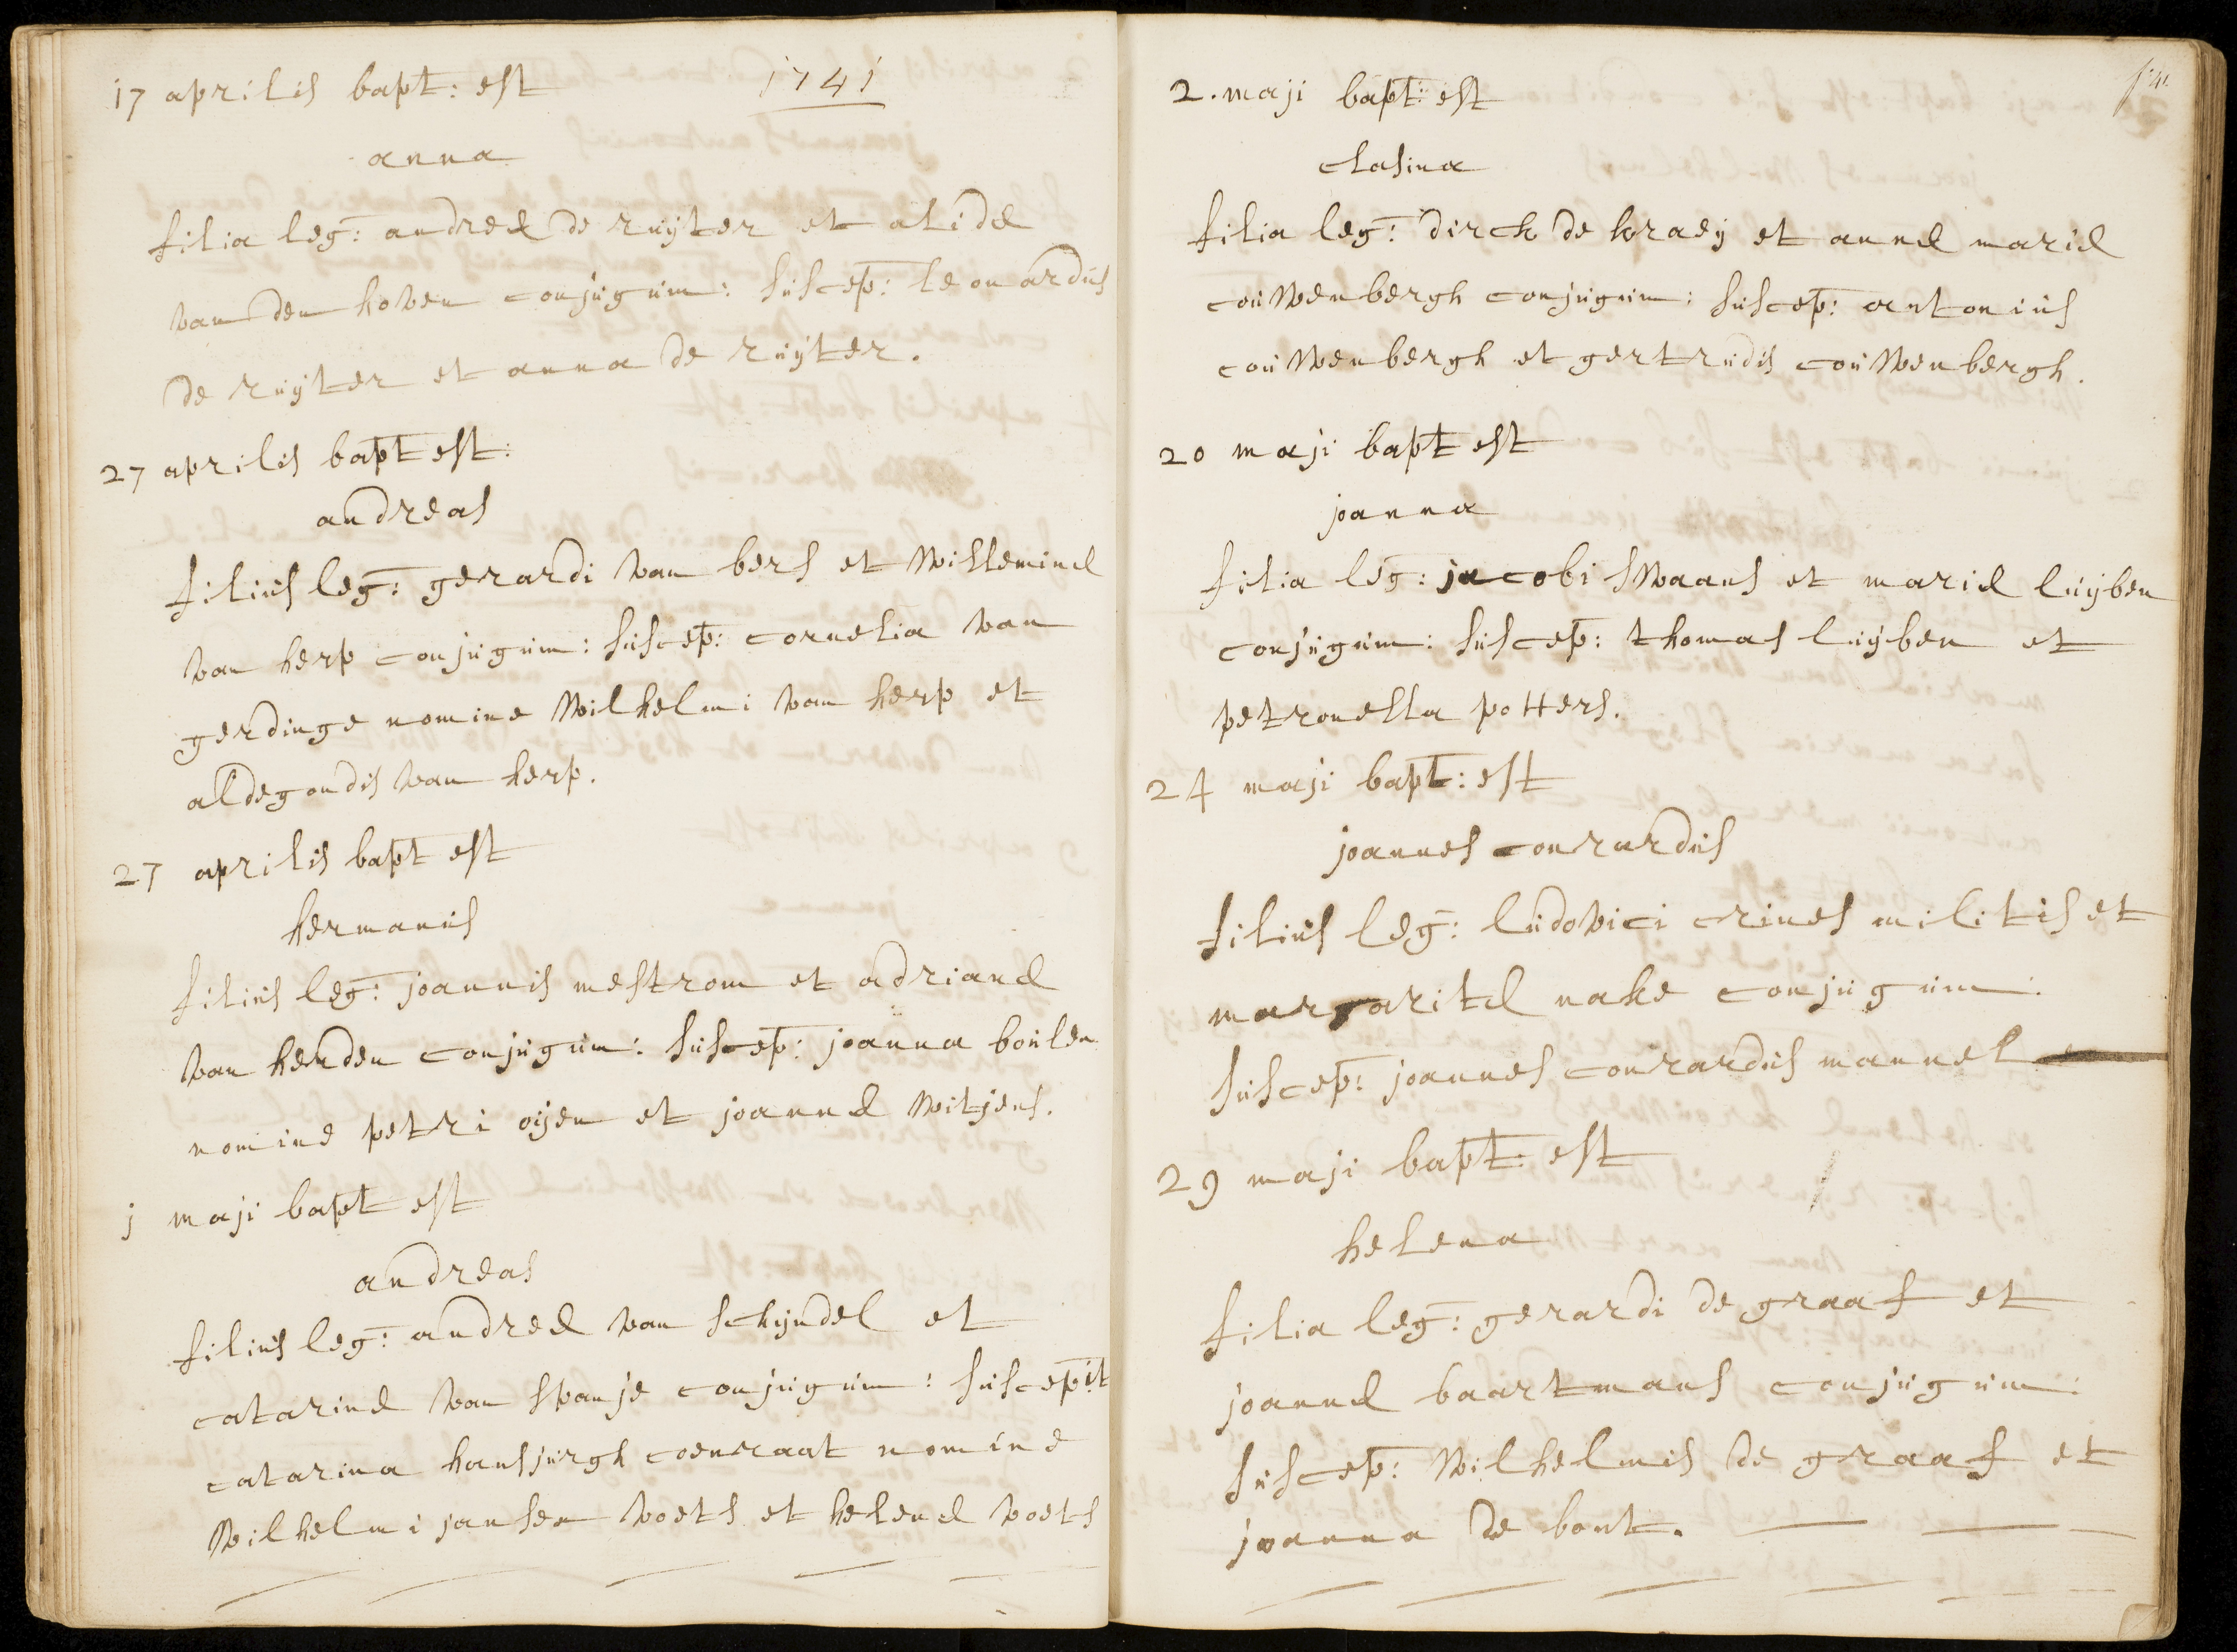 17 aprilis bapt: est 1741
anna
filia leg: andreæ de ruÿter et alidæ
van den hoven conjugum: suscep: leonardus
de ruÿter et anna de ruÿter.
27 aprilis bapt est:
andreas
filius leg: gerardi van bers et Willeminæ
van herp conjugum: suscep: cornelia van
gerdinge nomine Wilhelmi van herp et
aldegondis van herp.
27 aprilis bapt est
hermanus
filius leg: joannis mestrom et adrianæ
van herden conjugum: suscep: joanna boulen
nomine petri oijen et joannæ Witjens.
j maji bapt est
andreas
filius leg: andreæ van schijndel et
catarinæ van spanje conjugum: suscepit
catarina hansjurgh coenraat nomine
Wilhelmi jansen voets et helenæ voets
2. maji bapt: est
clasina
filia leg: dirck de kraeÿ et annæ mariæ
couWenbergh conjugum: suscep: antonius
couWenbergh et gertrudis couWenbergh.
20 maji bapt est
joanna
filia leg: jacobi sWaans et mariæ luÿben
conjugum: suscep: thomas luÿben et
petronella potters.
24 maji bapt: est
joannes conrardus
filius leg: ludovici crines militis et
margaritæ nake conjugum:
suscep: joannes conrardus mannel
29 maji bapt: est
helena
filia leg: gerardi de graaf et
joannæ baartmans conjugum:
suscep: Wilhelmus de graaf et
joanna de bont.